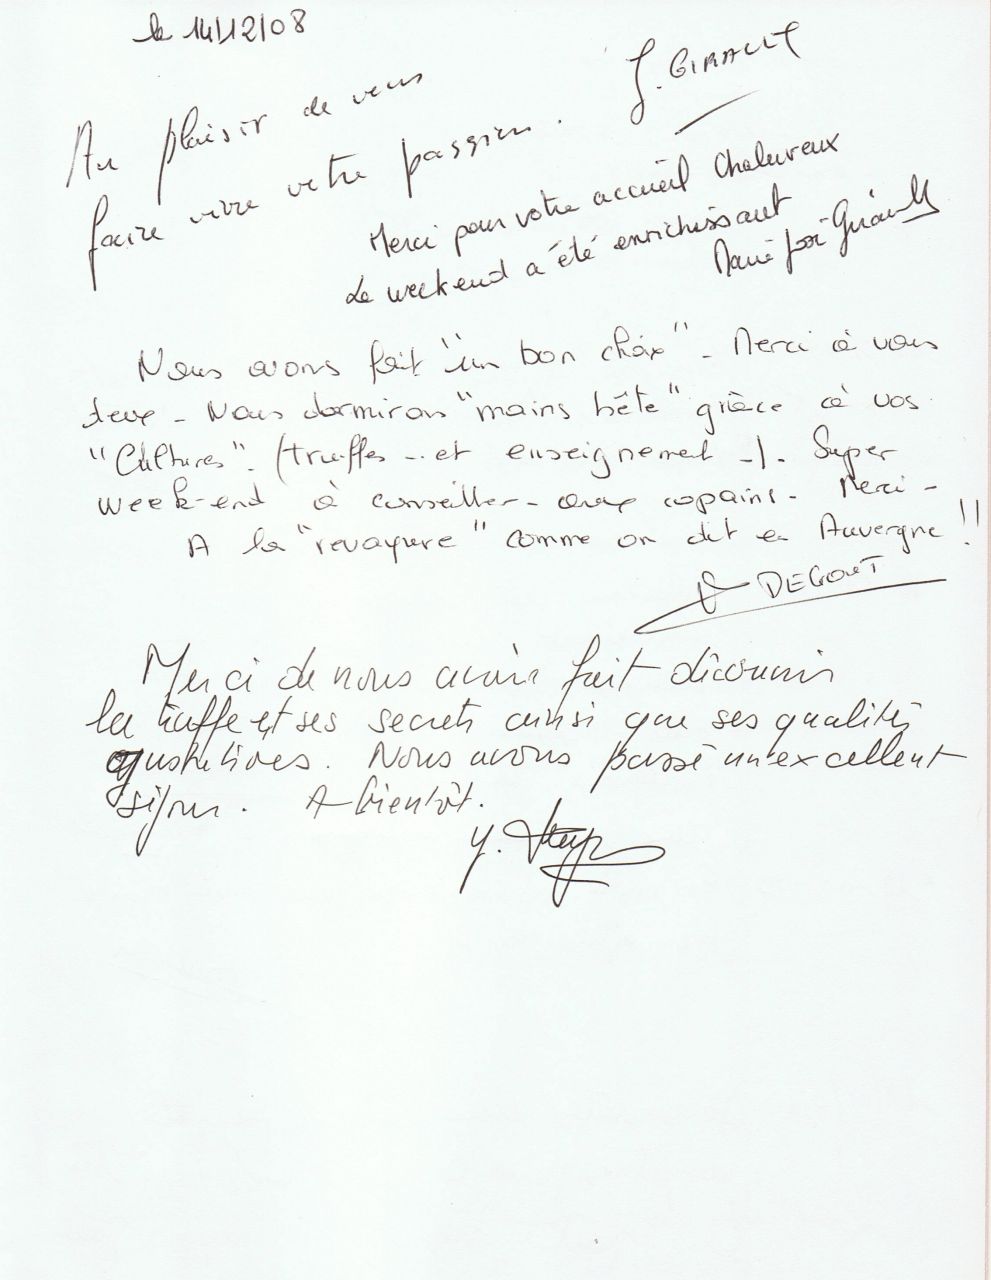 le 14/12/08
Au plaisir de vous
faire vivre votre passion.
J. GIRAULT
Merci pour votre accueil chaleureux
Le weekend a été enrichissant
Marie José Girault
Nous avons fait "un bon choix" - Merci à vous
deux - Nous dormirons "moins bête" grâce à vos
"Cultures". (truffes - et enseignement -). Super
week-end à conseiller - aux copains - Merci -
A la "revoyure" comme on dit en Auvergne !!
DEGOUT
Merci de nous avoir fait découvrir
la truffe et ses secrets ainsi que ses qualités
gustatives. Nous avons passé un excellent
séjour. A bientôt.
Y.